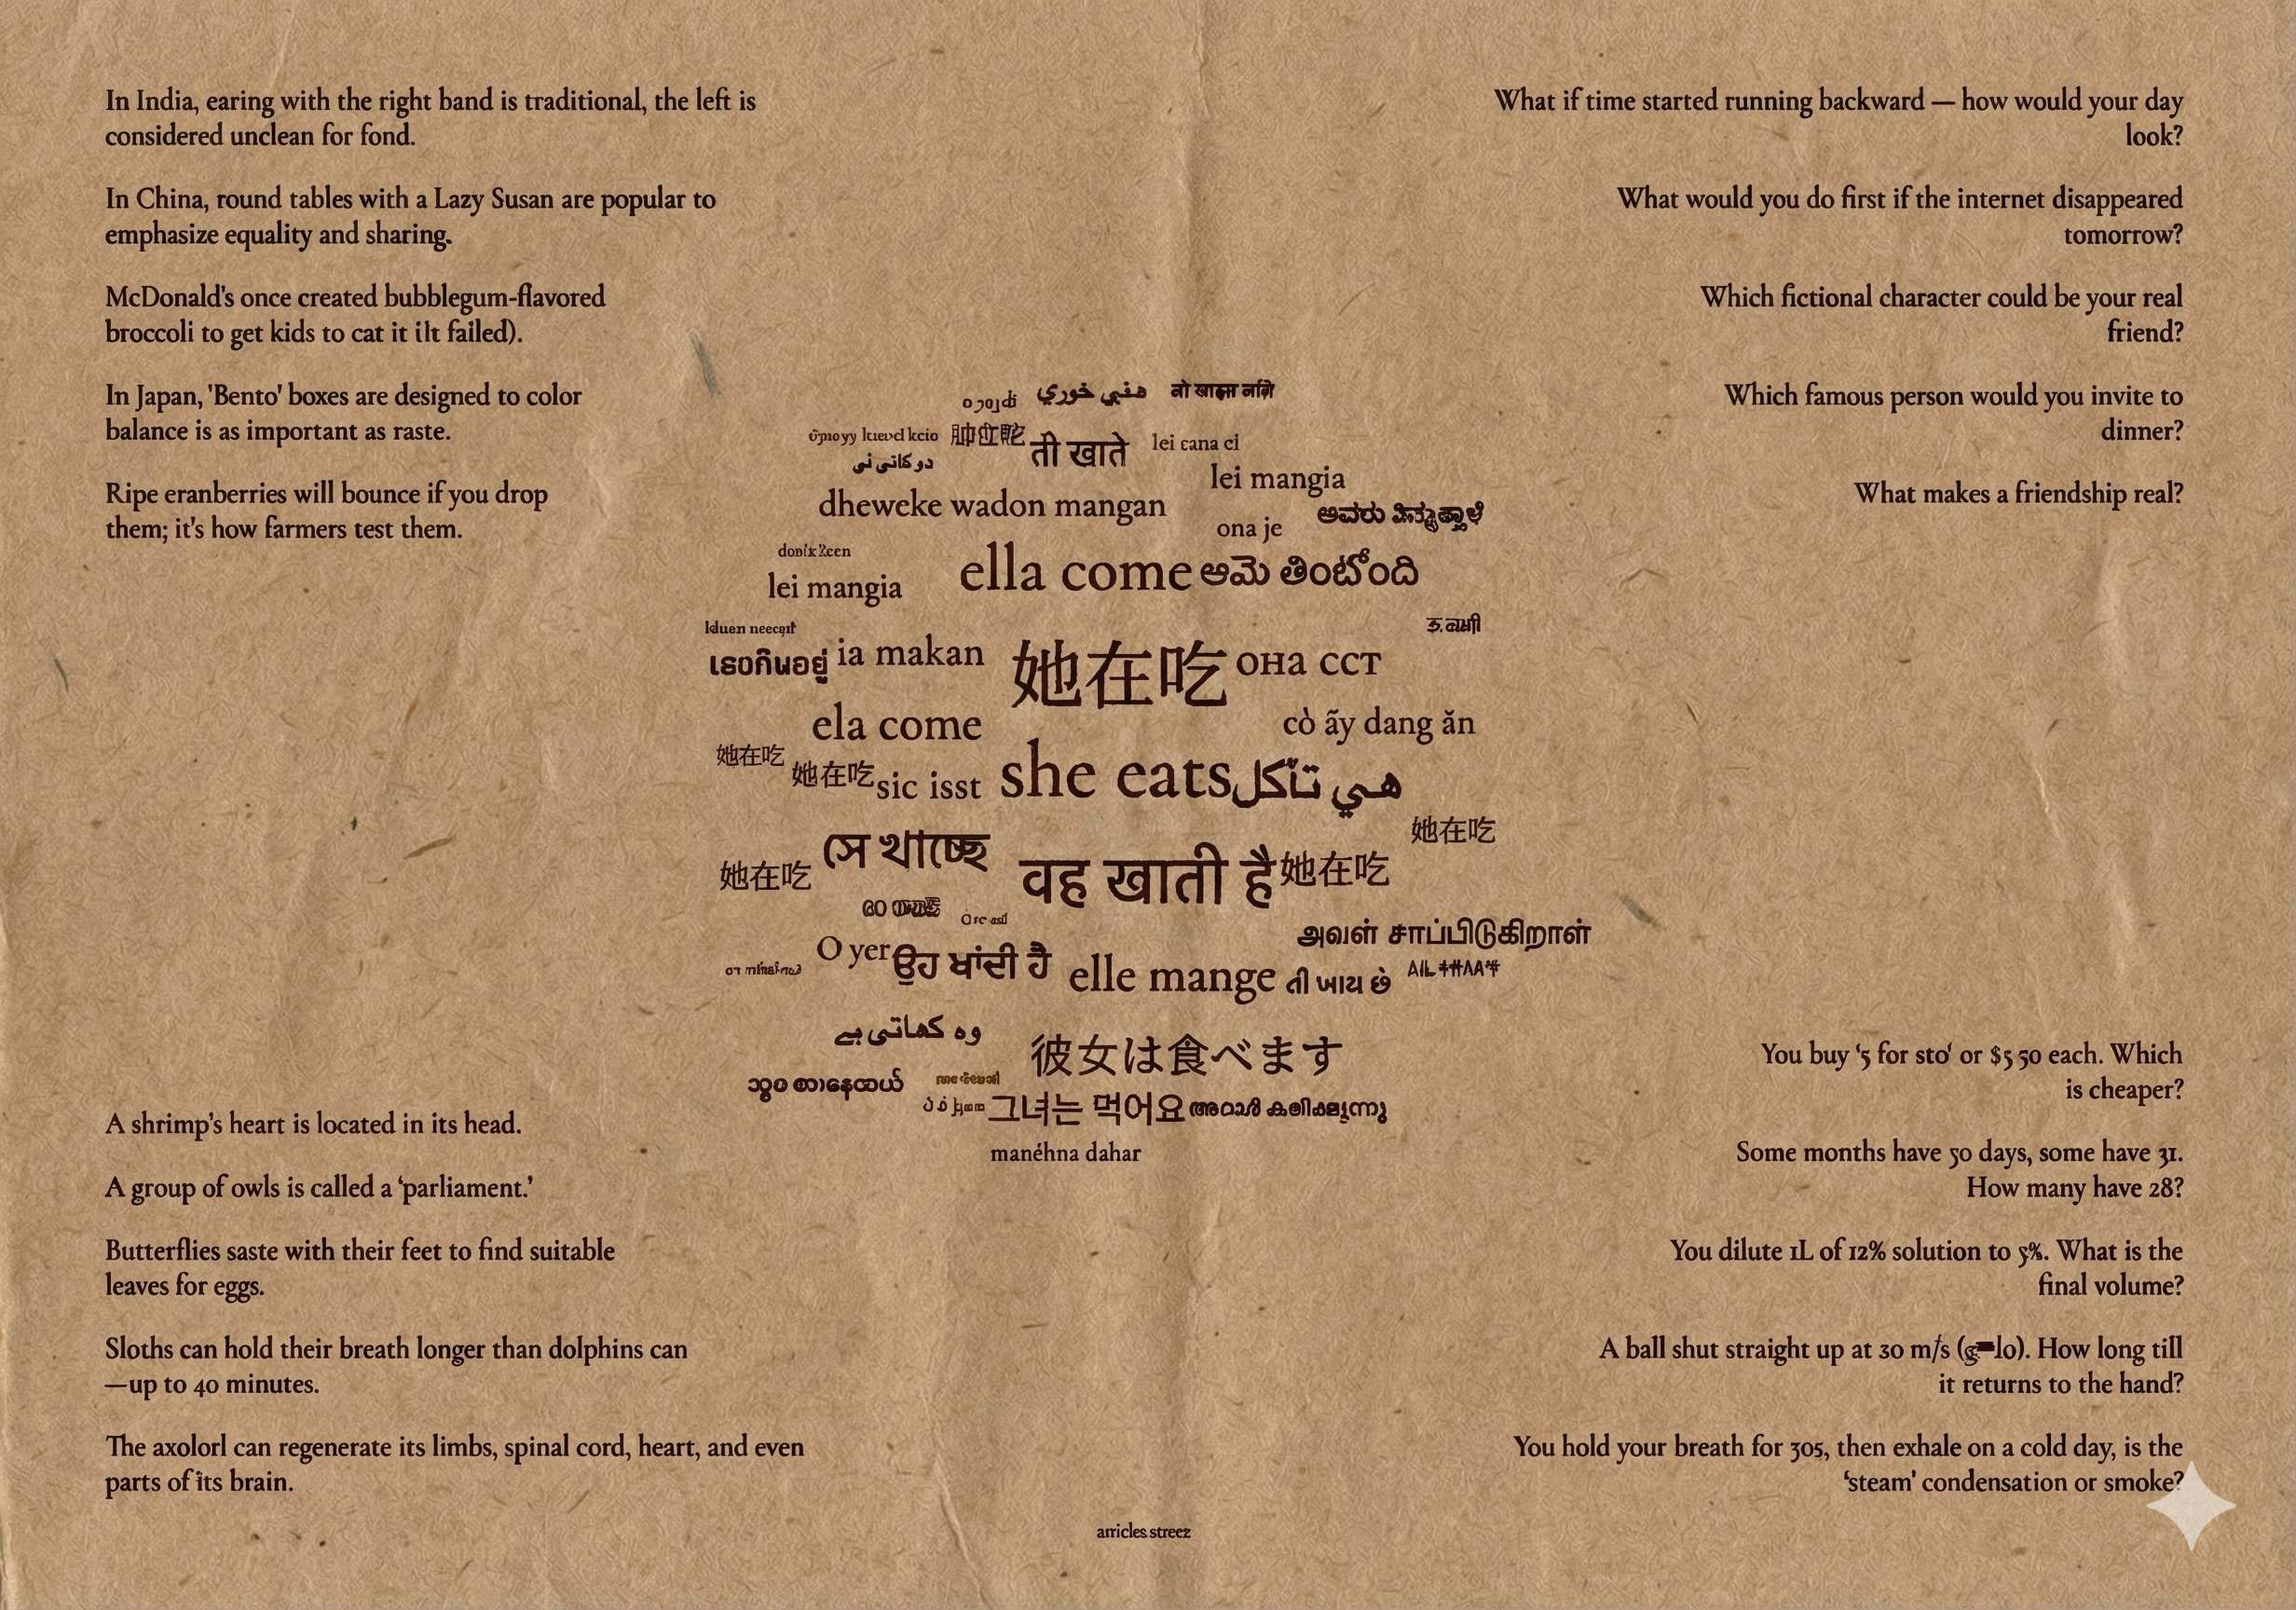 In India, earing with the right band is traditional, the left is
considered unclean for fond.
In China, round tables with a Lazy Susan are popular to
emphasize equality and sharing.
McDonald's once created bubblegum-flavored
broccoli to get kids to cat it ilt failed).
In Japan, 'Bento' boxes are designed to color
balance is as important as raste.
Ripe eranberries will bounce if you drop
them; it's how farmers test them.
What if time started running backward — how would your day
look?
What would you do first if the internet disappeared
tomorrow?
Which fictional character could be your real
friend?
Which famous person would you invite to
dinner?
What makes a friendship real?
ती खाते
lei cana ci
lei mangia
dheweke wadon mangan
ona je
ella come
ఆమె తింటోంది
lei mangia
ia makan
她在吃
она сст
เธอกินอยู่
ela come
cò ãy dang ăn
她在吃
她在吃
sic isst
she eats
هي تأكل
她在吃
সে খাচ্ছে
她在吃
वह खाती है
她在吃
அவள் சாப்பிடுகிறாள்
O yer
ਉਹ ਖਾਂਦੀ ਹੈ
elle mange
તી ખાય છે
وہ کھاتی ہے
彼女は食べます
그녀는 먹어요
manéhna dahar
A shrimp's heart is located in its head.
A group of owls is called a 'parliament.'
Butterflies saste with their feet to find suitable
leaves for eggs.
Sloths can hold their breath longer than dolphins can
—up to 40 minutes.
The axolorl can regenerate its limbs, spinal cord, heart, and even
parts of its brain.
You buy '5 for sto' or $5 50 each. Which
is cheaper?
Some months have 50 days, some have 31.
How many have 28?
You dilute 1L of 12% solution to 5%. What is the
final volume?
A ball shut straight up at 30 m/s (g=lo). How long till
it returns to the hand?
You hold your breath for 305, then exhale on a cold day, is the
'steam' condensation or smoke?
arricles streez